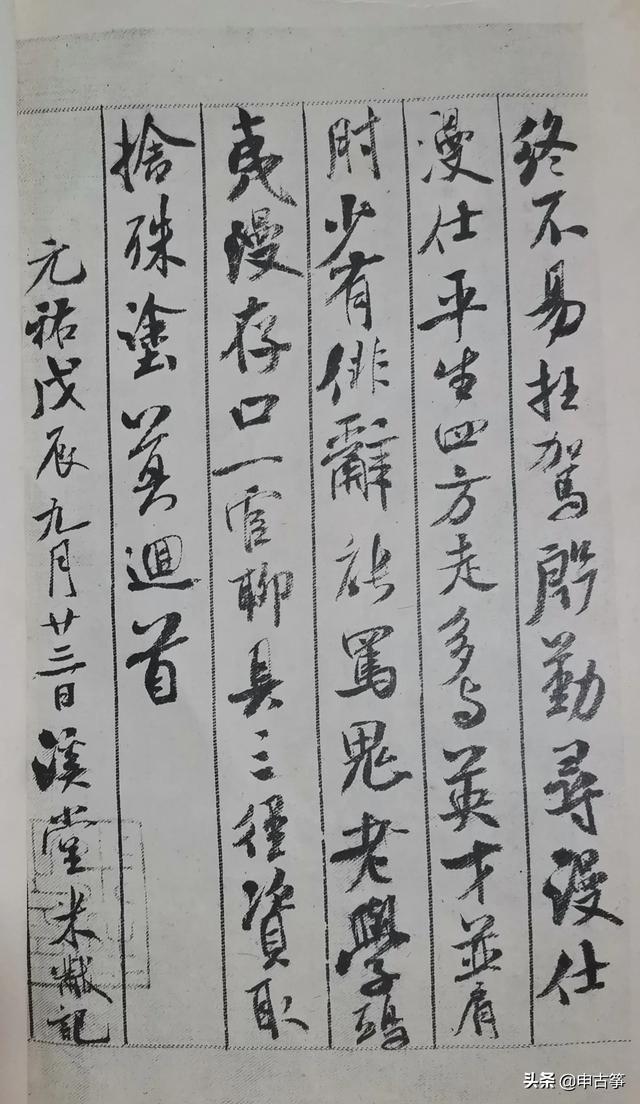 終不易枉駕殷勤尋漫仕
漫仕平生四方走多与英才並肩
肘少有俳辭能罵鬼老學鴟
夷漫存口一官聊具三徑資取
捨殊塗莫迴首
元祐戊辰九月廿三日溪堂米黻記
头条 @申古筝